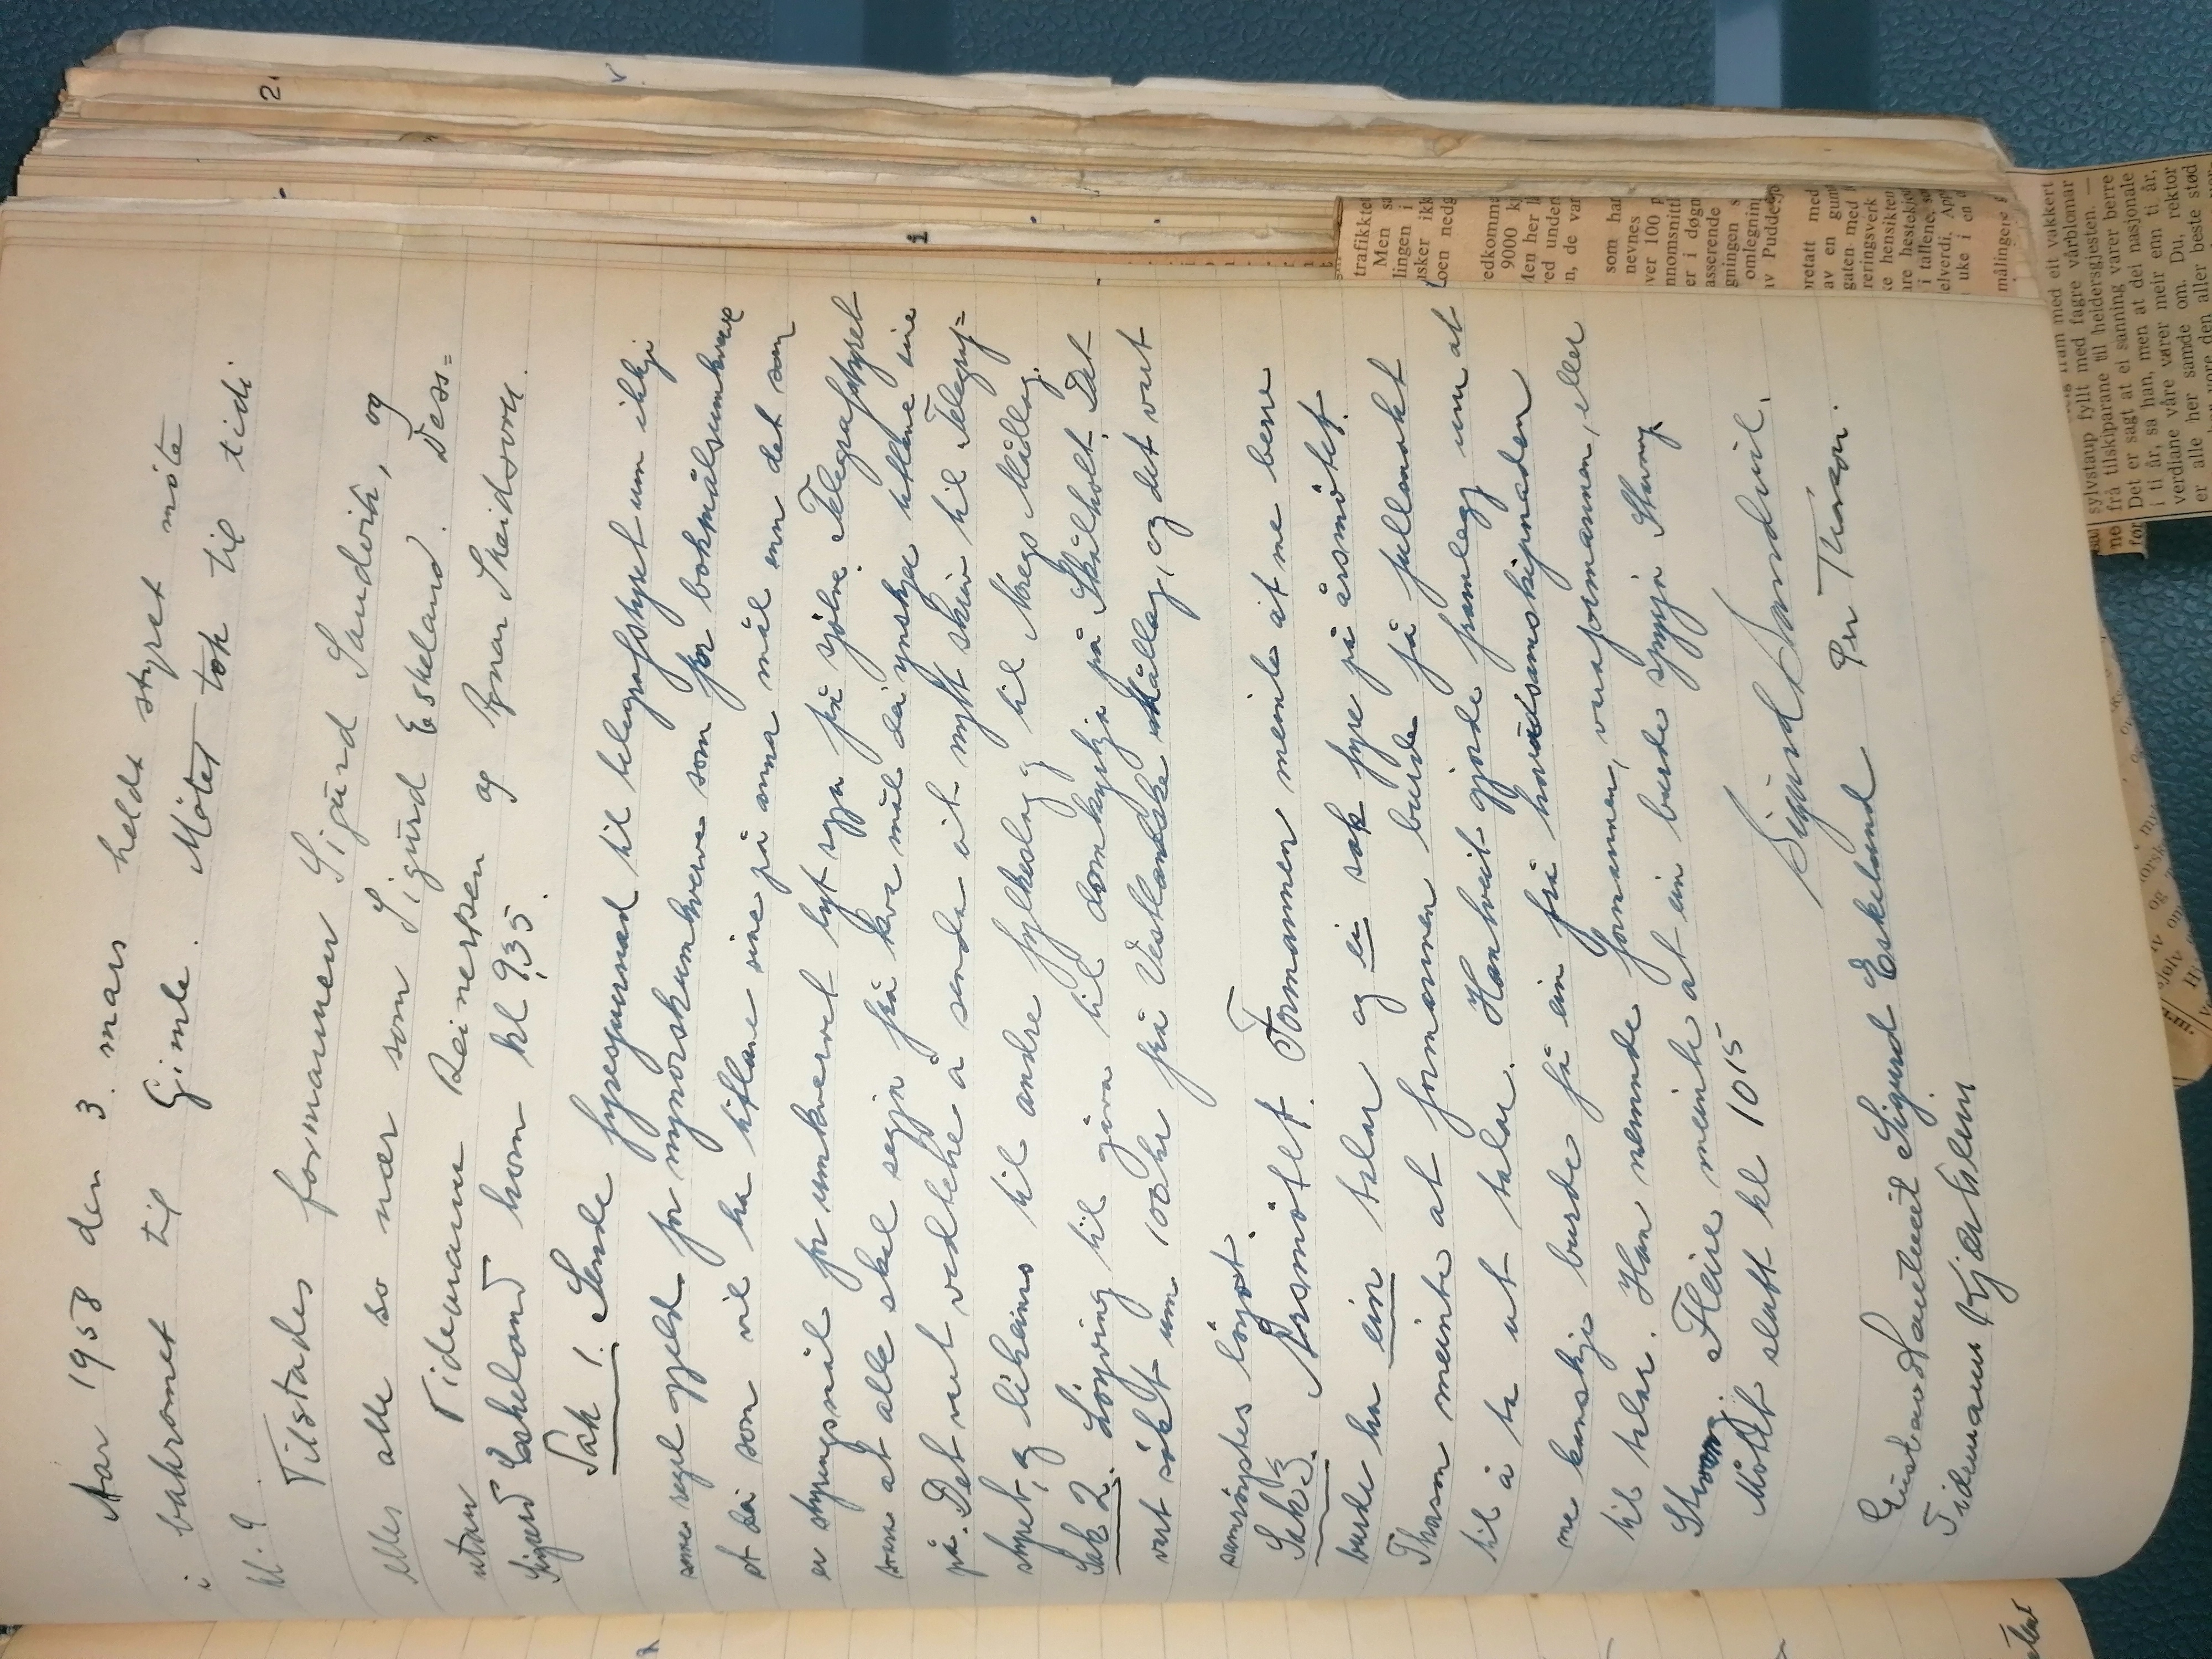 Aar 1958 den 3. mars heldt styret møte
i bakromet til Gimle. Møtet tok til tidi
kl. 9
Tilstades formannen Sigurd Sandvik, og
elles alle so nær som Sigurd Eskeland. Dess=
utan Tidemann Reinertsen og Gunnar Skeidsvoll.
Sigurd Eskeland kom kl 9,35.
Sak 1. Sende fyrespurnad til telegrafstyret um ikkji
same regel gjeld for nynorskumkverve som for bokmålsumkverve
at dei som vil ha titlane sine på anna mål enn det som
er styringsmål for umkvervet lyt seja frå sjølve. Telegrafstyret
som at alle skal segja frå kva mål dei ynskjer titlane sine
på. Det vart vedteke å senda eit nytt skriv til Telegraf=
styret, og likeins til andre fylkeslag og til Noregs Mållag.
Sak 2. Løyving til gåva til domkyrkja på Skålholt. Det
vart søkt um 100 kr frå Vestlandske Mållag, og det vart
samrøystes løyvt.
Sak 3. Årsmøtet. Formannen meinte at me berre
burde ha ein talar og ei sak fyre på årsmøtet.
Thorson meinte at formannen burde få fullmakt
til å ta ut talar. Hantveit gjorde framlegg um at
me kanskje burde få ein frå hovudsamskipnaden
til talar. Han nemnde formannen, varaformannen, eller
Strøm. Fleire meinte at ein burde spyrja Strøm
Møtet slutt kl 10 15
Sigurd Sandvik.
Gustav Hantveit Sigurd Eskeland Per Thorson.
Tidemann Kjærheim
trafikktet
Men sa
lingen i
sker ikk
oen nedg
edkomma
9000 k
ed under
n, de var
som har
nevnes
ver 100 p
nnomsnittl
er i døgn
asserende
gningen s
omlegning
av Pudde
retatt med
av en gum
gaten med
reringsverk
e hensikten
are hestekj
i tallene, so
elverdi. App
uke i en
målingene
fram med eit vakkert
sylvstaup fyllt med fagre vårblomar
frå tilskiparane til heidersgjesten. —
Det er sagt at ei sanning varer berre
i ti år, sa han, men at dei nasjonale
verdiane våre varer meir enn ti år,
er alle her samde om. Du, rektor
den aller beste stød